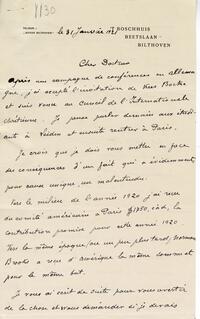 1130
BOSCHHUIS
BEETSLAAN -
BILTHOVEN
le 31 Janvier 1921
Cher Bertram
Après une campagne de conférences en Allema
gne, j'ai accepté l'invitation de Kees Boeke
et suis venu au Conseil de l'Internationale
chrétienne. Je pense parler demain aux étudi
ants à Leiden et ensuite rentrer à Paris.
Je crois que je dois vous mettre en face
de conséquences d'un fait qui a évidemment
pour cause unique, un malentendu.
Vers le milieu de l'année 1920 j'ai reçu
du comité américaine à Paris $1250, càd, la
contribution promise pour cette année 1920
Vers la même époque, ou un peu plus tard,
a reçu d'Amérique la même somme et
pour le même but.
Je vous ai écrit de suite pour vous avertir
de la chose et vous demander si je devais